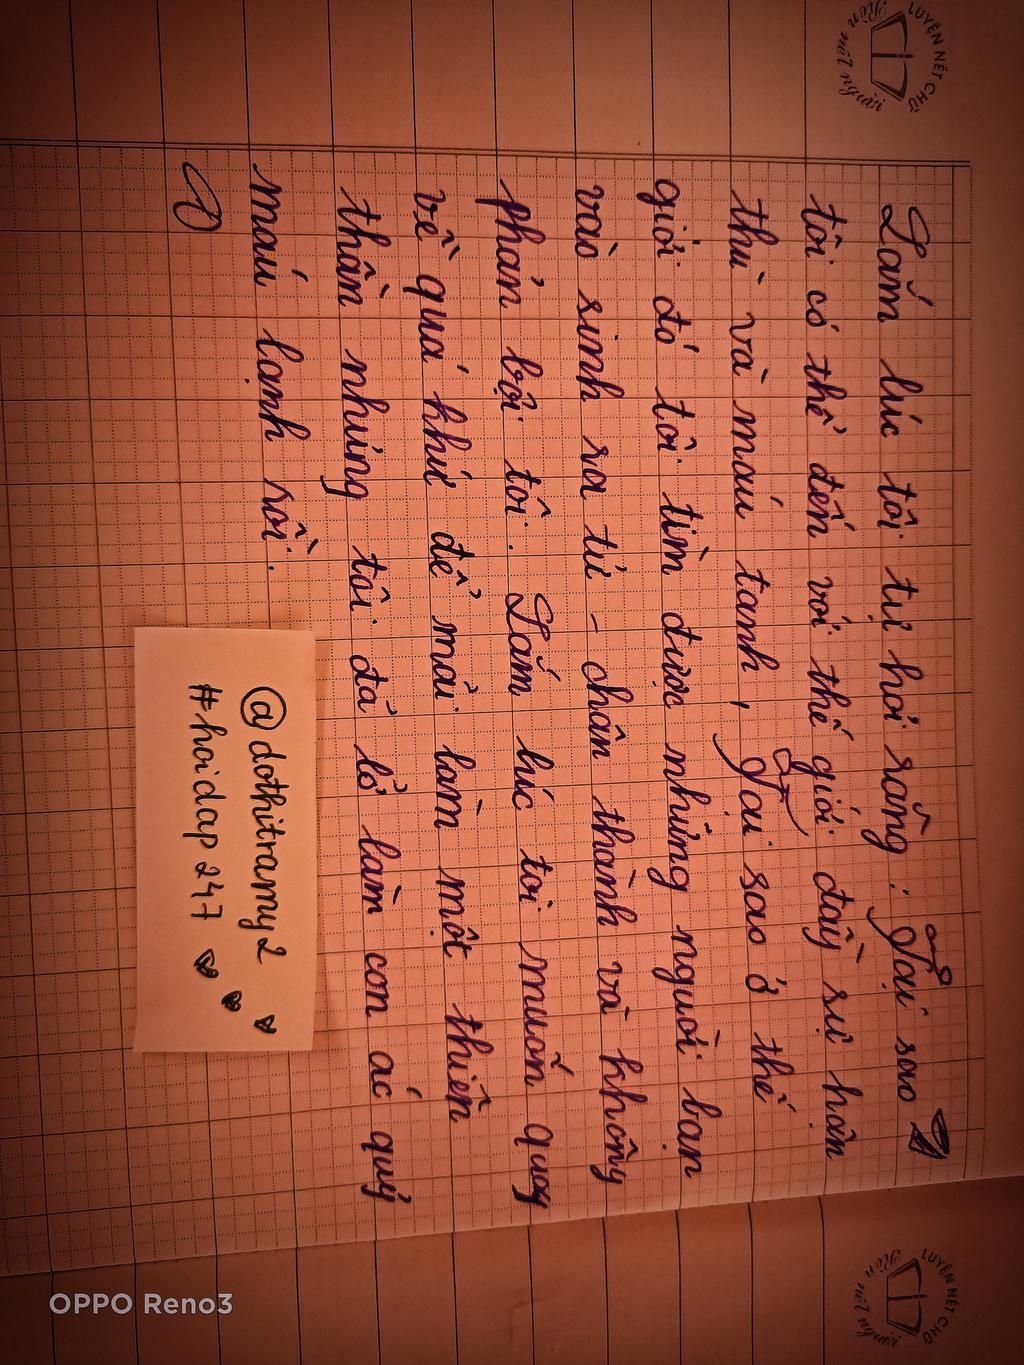 LUYỆN NÉT CHỮ
Rèn nết người
Lắm lúc tôi tự hỏi rằng: Tại sao
tôi có thể đến với thế giới đầy sự hận
thù và máu tanh, Tại sao ở thế
giới đó tôi tìm được những người bạn
vào sinh ra tử - chân thành và không
phản bội tôi. Lắm lúc tôi muốn quay
về quá khứ để mãi làm một thiên
thần nhưng tôi đã lỡ làm con ác quỷ
máu lạnh rồi.
@dothitramy2
#hoidap247
LUYỆN NÉT CHỮ
Rèn nết người
OPPO Reno3